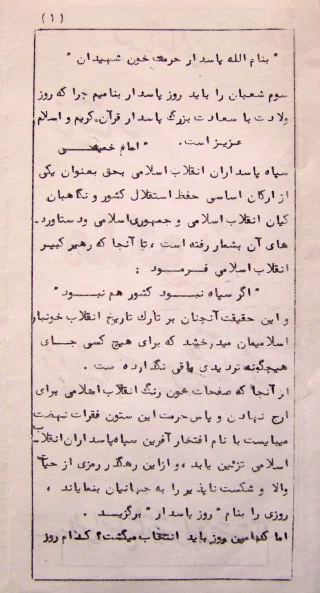 (۱)
" بنام الله پاسدار حرمت خون شهیدان "
سوم شعبان را باید روز پاسدار بنامیم چرا که روز
ولادت با سعادت بزرگ پاسدار قرآن کریم و اسلام
عزیز است. "امام خمینی"
سپاه پاسداران انقلاب اسلامی بحق بعنوان یکی
از ارکان اساسی حفظ استقلال کشور و نگاهبان
کیان انقلاب اسلامی و جمهوری اسلامی و دستاورد-
های آن بشمار رفته است ، تا آنجا که رهبر کبیر
انقلاب اسلامی فرمود :
" اگر سپاه نبود کشور هم نبود "
و این حقیقت آنچنان بر تارک تاریخ انقلاب خونبار
اسلامیمان میدرخشد که برای هیچ کسی جای
هیچگونه تردیدی باقی نگذارده است .
از آنجا که صفحات خون رنگ انقلاب اسلامی برای
ارج نهادن و پاس حرمت این ستون فقرات نهضت
میبایست با نام افتخار آفرین سپاه پاسداران انقلاب
اسلامی تزئین یابد ، و از این رهگذر رمزی از حیات
والا و شکست ناپذیر را به جهانیان بنمایاند ،
روزی را بنام " روز پاسدار " برگزید .
اما کدامین روز باید انتخاب میگشت؟ کدام روز